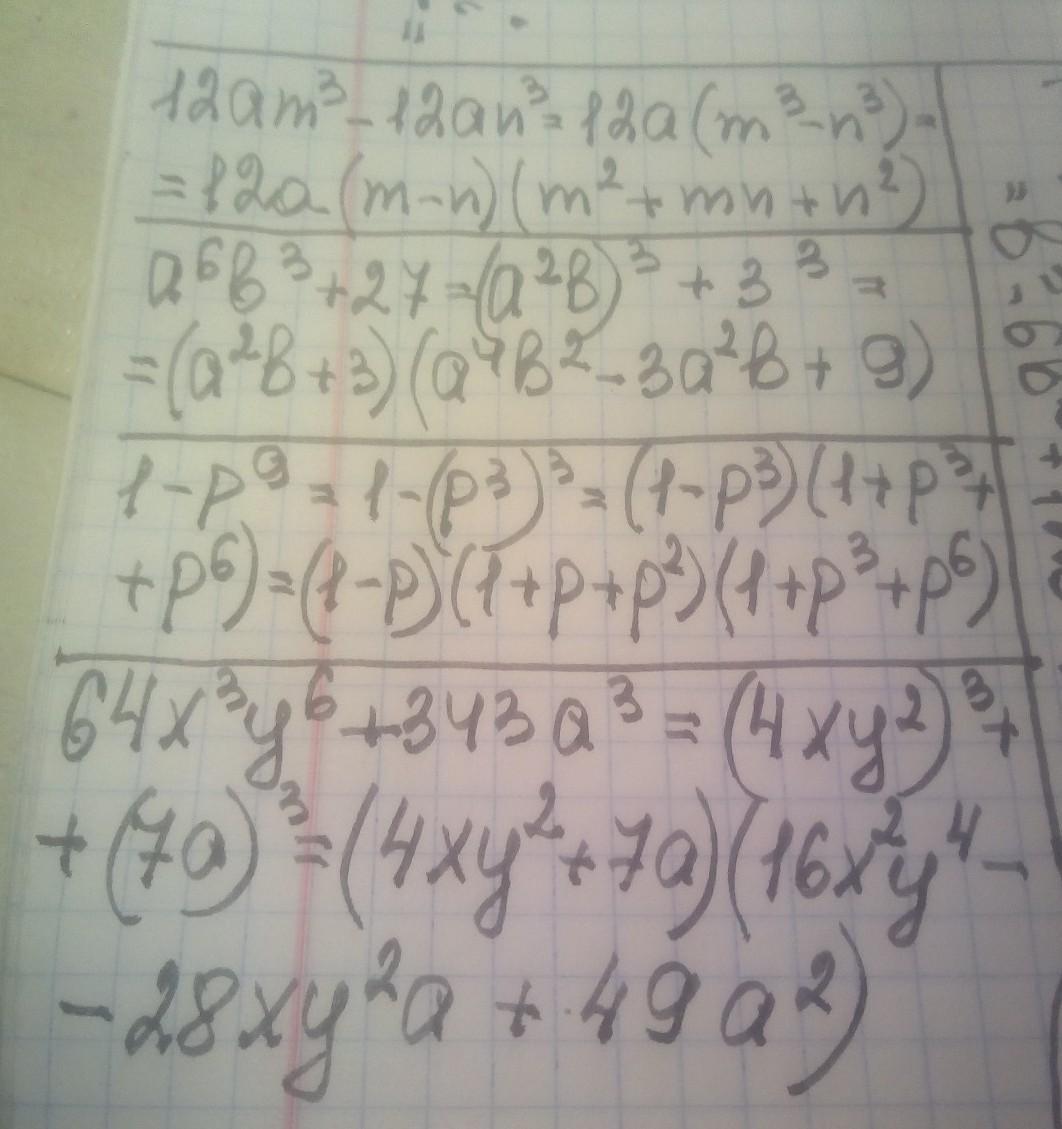 12am³ - 12an³ = 12a(m³-n³) =
= 12a(m-n)(m² + mn + n²)
a⁶b³ + 27 = (a²b)³ + 3³ =
= (a²b + 3)(a⁴b² - 3a²b + 9)
1 - p⁹ = 1 - (p³)³ = (1-p³)(1 + p³ +
+ p⁶) = (1-p)(1 + p + p²)(1 + p³ + p⁶)
64x³y⁶ + 343a³ = (4xy²)³ +
+ (7a)³ = (4xy² + 7a)(16x²y⁴ -
- 28xy²a + 49a²)